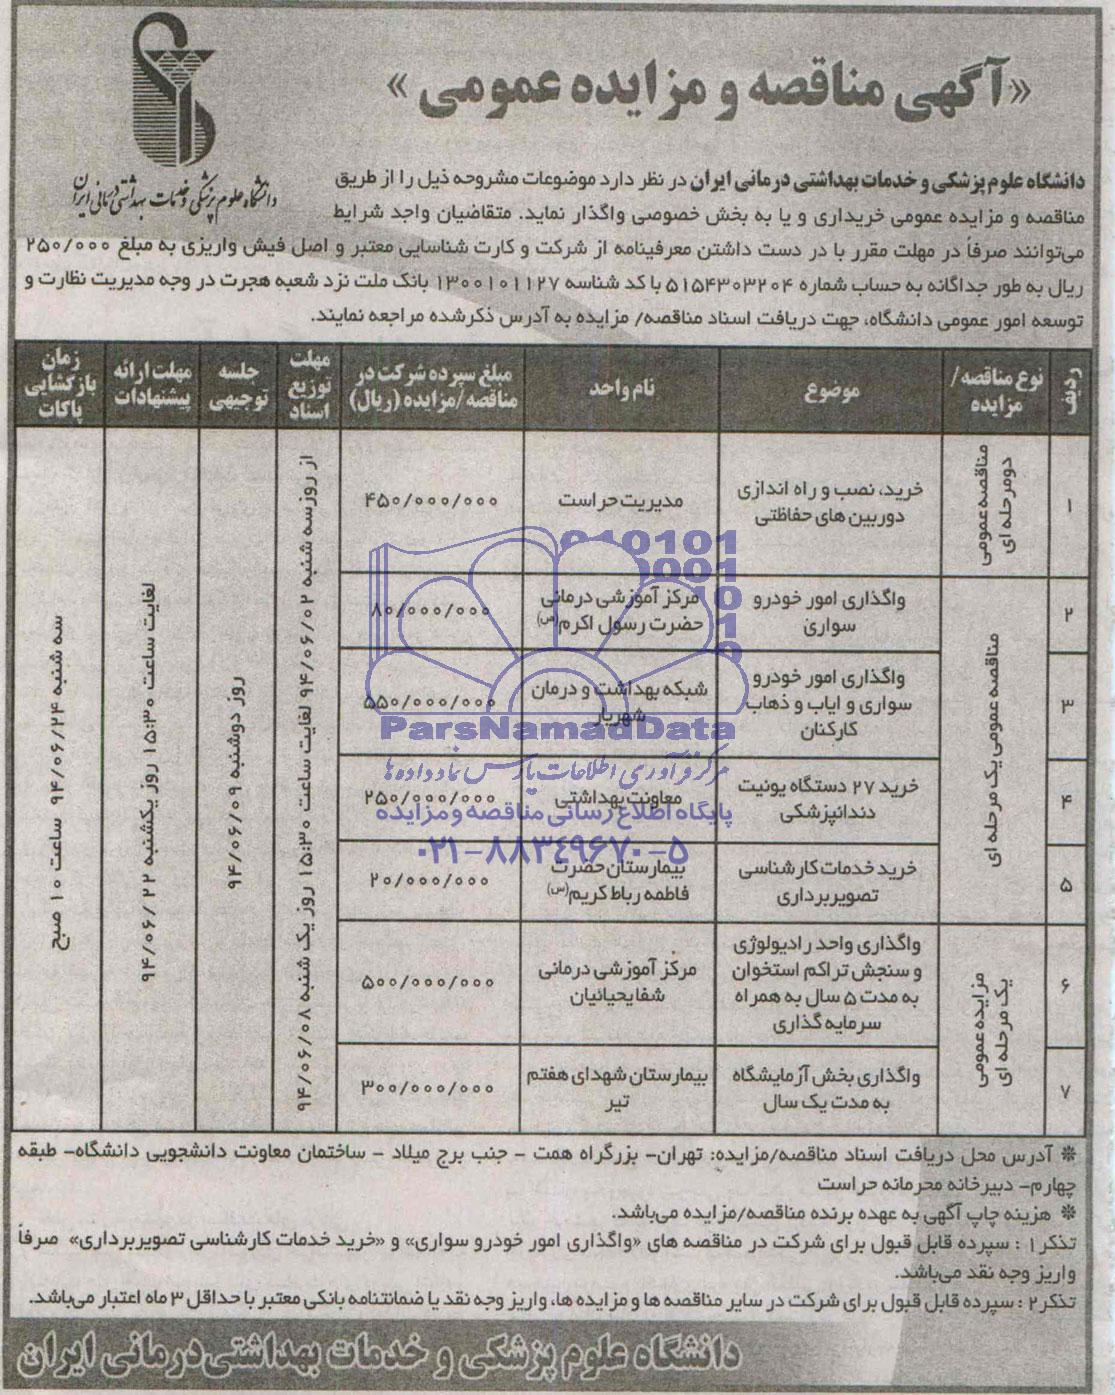 «آگهی مناقصه و مزایده عمومی»
دانشگاه علوم پزشکی و خدمات بهداشتی درمانی ایران
دانشگاه علوم پزشکی و خدمات بهداشتی درمانی ایران در نظر دارد موضوعات مشروحه ذیل را از طریق
مناقصه و مزایده عمومی خریداری و یا به بخش خصوصی واگذار نماید. متقاضیان واجد شرایط
می‌توانند صرفاً در مهلت مقرر با در دست داشتن معرفینامه از شرکت و کارت شناسایی معتبر و اصل فیش واریزی به مبلغ ۲۵۰/۰۰۰
ریال به طور جداگانه به حساب شماره ۵۱۵۴۳۰۳۲۰۴ با کد شناسه ۱۳۰۰۱۰۱۱۲۷ بانک ملت نزد شعبه هجرت در وجه مدیریت نظارت و
توسعه امور عمومی دانشگاه، جهت دریافت اسناد مناقصه/ مزایده به آدرس ذکرشده مراجعه نمایند.
ردیف
نوع مناقصه/
مزایده
موضوع
نام واحد
مبلغ سپرده شرکت در
مناقصه/مزایده (ریال)
مهلت
توزیع
اسناد
جلسه
توجیهی
مهلت ارائه
پیشنهادات
زمان
بازگشایی
پاکات
۱
مناقصه عمومی
دومرحله ای
خرید، نصب و راه اندازی
دوربین های حفاظتی
مدیریت حراست
۴۵۰/۰۰۰/۰۰۰
از روز سه شنبه ۹۴/۰۶/۰۲ لغایت ساعت ۱۵:۳۰ روز یک شنبه ۹۴/۰۶/۰۸
روز دوشنبه ۹۴/۰۶/۰۹
لغایت ساعت ۱۵:۳۰ روز یکشنبه ۹۴/۰۶/۲۲
سه شنبه ۹۴/۰۶/۲۴ ساعت ۱۰ صبح
۲
مناقصه عمومی یک مرحله ای
واگذاری امور خودرو
سواری
مرکز آموزشی درمانی
حضرت رسول اکرم(ص)
۸۰/۰۰۰/۰۰۰
۳
واگذاری امور خودرو
سواری و ایاب و ذهاب
کارکنان
شبکه بهداشت و درمان
شهریار
۵۵۰/۰۰۰/۰۰۰
۴
خرید ۲۷ دستگاه یونیت
دندانپزشکی
معاونت بهداشتی
۲۵۰/۰۰۰/۰۰۰
۵
خرید خدمات کارشناسی
تصویربرداری
بیمارستان حضرت
فاطمه رباط کریم(س)
۲۰/۰۰۰/۰۰۰
۶
مزایده عمومی
یک مرحله ای
واگذاری واحد رادیولوژی
و سنجش تراکم استخوان
به مدت ۵ سال به همراه
سرمایه گذاری
مرکز آموزشی درمانی
شفایحیائیان
۵۰۰/۰۰۰/۰۰۰
۷
واگذاری بخش آزمایشگاه
به مدت یک سال
بیمارستان شهدای هفتم
تیر
۳۰۰/۰۰۰/۰۰۰
ParsNamadData
مرکز فرآوری اطلاعات پارس نماد داده ها
پایگاه اطلاع رسانی مناقصه و مزایده
۰۲۱-۸۸۳۴۹۶۷۰-۵
* آدرس محل دریافت اسناد مناقصه/مزایده: تهران- بزرگراه همت - جنب برج میلاد - ساختمان معاونت دانشجویی دانشگاه- طبقه
چهارم- دبیرخانه محرمانه حراست
* هزینه چاپ آگهی به عهده برنده مناقصه/مزایده می‌باشد.
تذکر۱ : سپرده قابل قبول برای شرکت در مناقصه های «واگذاری امور خودرو سواری» و «خرید خدمات کارشناسی تصویربرداری» صرفاً
واریز وجه نقد می‌باشد.
تذکر۲ : سپرده قابل قبول برای شرکت در سایر مناقصه ها و مزایده ها، واریز وجه نقد یا ضمانتنامه بانکی معتبر با حداقل ۳ ماه اعتبار می‌باشد.
دانشگاه علوم پزشکی و خدمات بهداشتی درمانی ایران